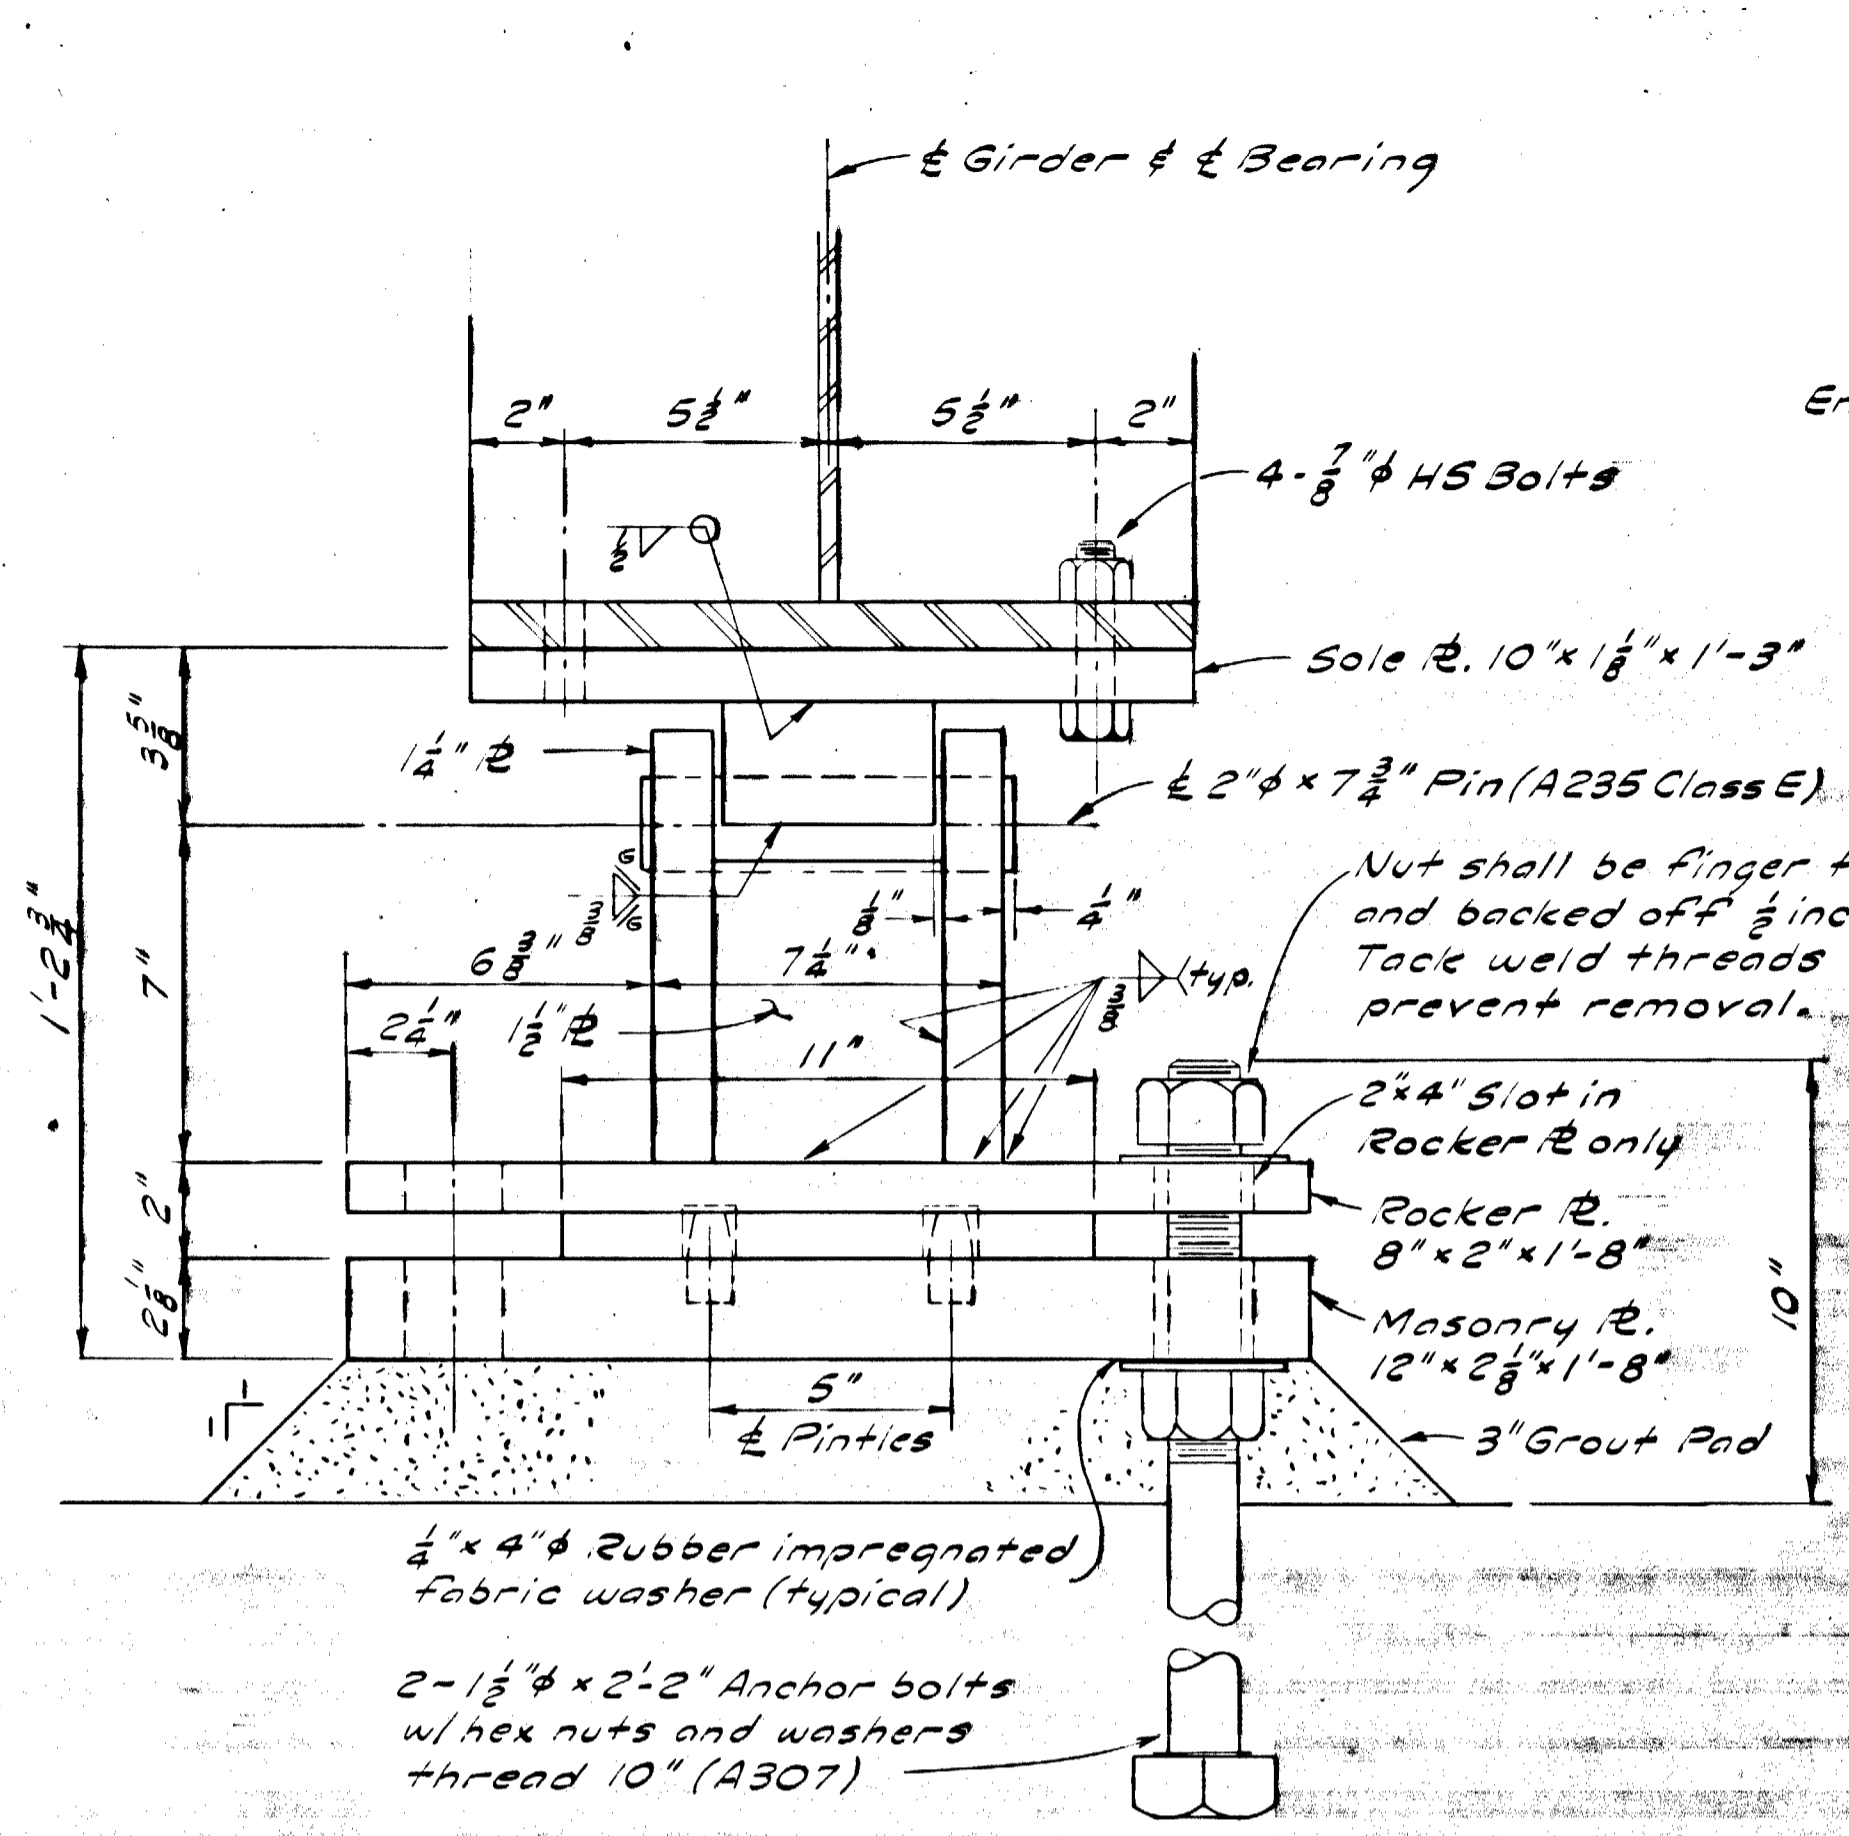 ℄ Girder & ℄ Bearing
2" 5½" 5½" 2"
Er
4-⅞"ϕ HS Bolts
½
Sole ℙL. 10"×1⅛"×1'-3"
3⅝"
1¼" ℙL
℄ 2"ϕ×7¾" Pin (A235 Class E)
Nut shall be finger t
and backed off ½ inc
Tack weld threads
prevent removal.
G
⅜
G
⅛" ¼"
1'-2¾"
7"
6⅜" 7¼"
⅜ (typ.
2¼" 1½" ℙL
11"
2"×4" Slot in
Rocker ℙL only
2"
Rocker ℙL.
8"×2"×1'-8"
2⅛"
10"
Masonry ℙL.
12"×2⅛"×1'-8"
5"
℄ Pintles
3" Grout Pad
¼"×4"ϕ Rubber impregnated
fabric washer (typical)
2-1½"ϕ×2'-2" Anchor bolts
w/hex nuts and washers
thread 10" (A307)